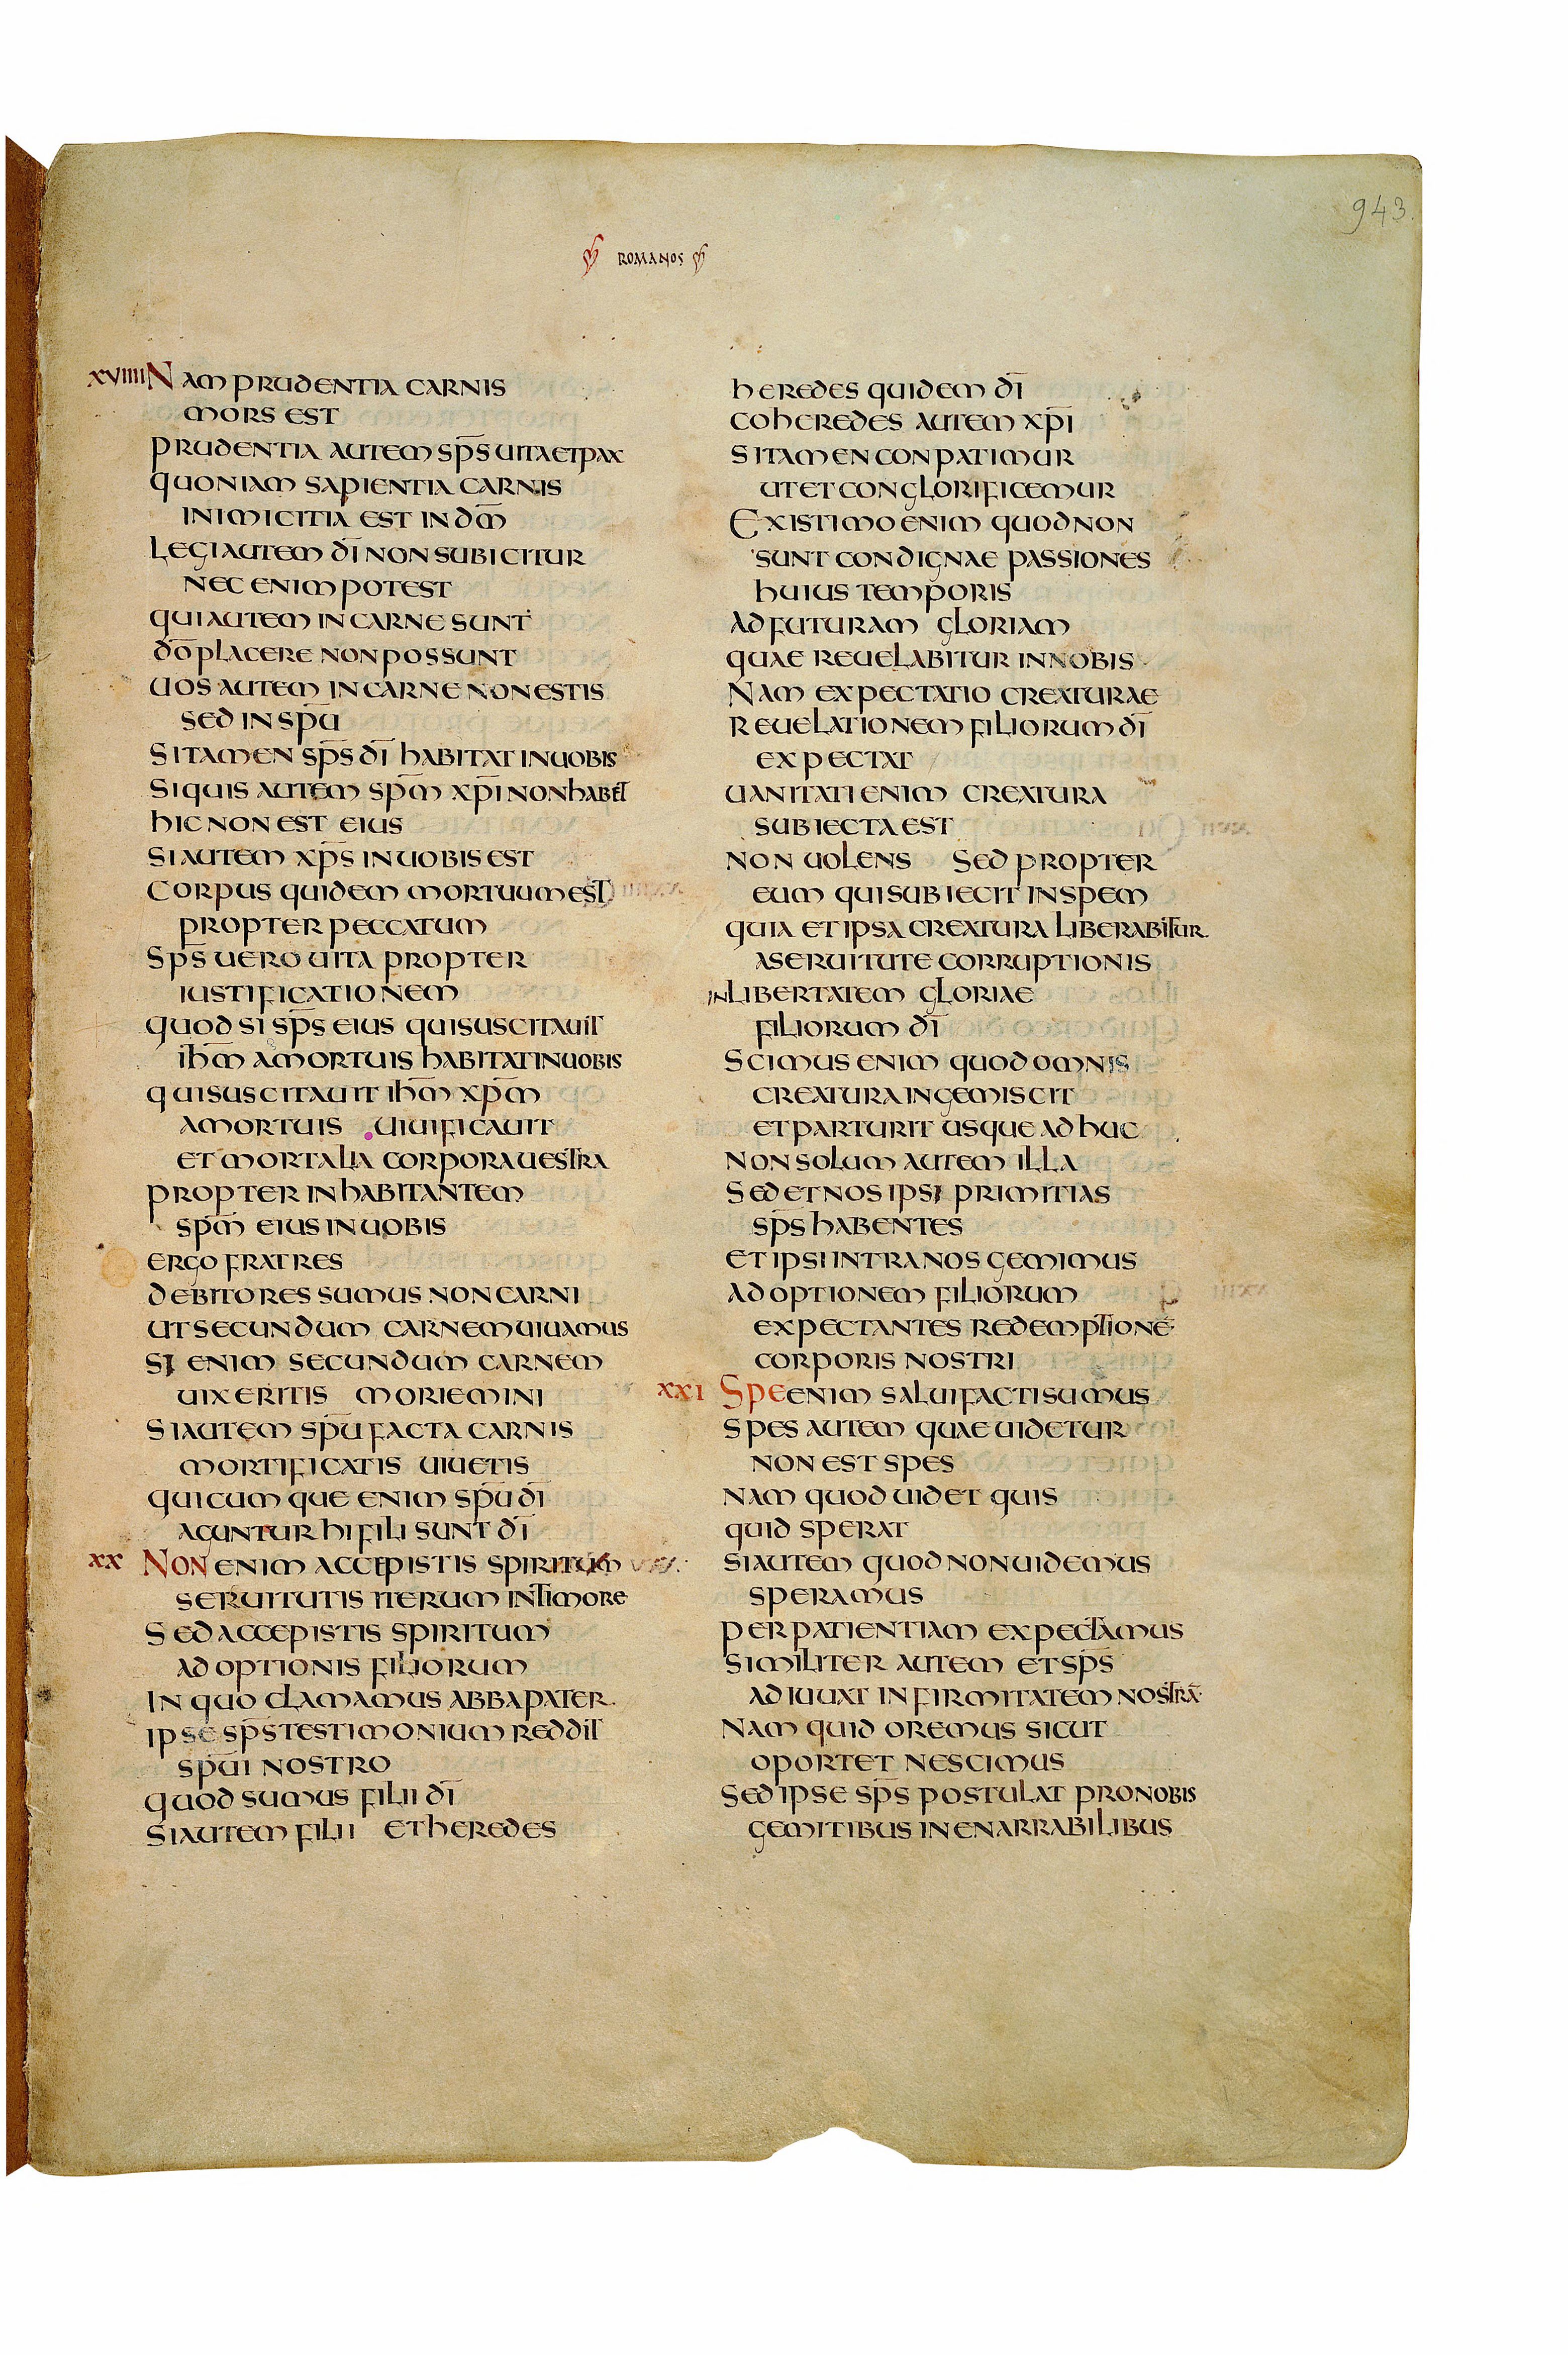 943.
ROMANOS
XVIIII NAM PRUDENTIA CARNIS
MORS EST
PRUDENTIA AUTEM SP̅S UITA ET PAX
QUONIAM SAPIENTIA CARNIS
INIMICITIA EST IN D̅M
LEGI AUTEM D̅I NON SUBICITUR
NEC ENIM POTEST
QUI AUTEM IN CARNE SUNT
D̅O PLACERE NON POSSUNT
UOS AUTEM IN CARNE NON ESTIS
SED IN SP̅U
SI TAMEN SP̅S D̅I HABITAT IN UOBIS
SI QUIS AUTEM SP̅M XP̅I NON HABET
HIC NON EST EIUS
SI AUTEM XP̅S IN UOBIS EST
CORPUS QUIDEM MORTUUM EST
PROPTER PECCATUM
SP̅S UERO UITA PROPTER
IUSTIFICATIONEM
QUOD SI SP̅S EIUS QUI SUSCITAUIT
IH̅M A MORTUIS HABITAT IN UOBIS
QUI SUSCITAUIT IH̅M XP̅M
A MORTUIS UIUIFICAUIT
ET MORTALIA CORPORA UESTRA
PROPTER INHABITANTEM
SP̅M EIUS IN UOBIS
ERGO FRATRES
DEBITORES SUMUS NON CARNI
UT SECUNDUM CARNEM UIUAMUS
SI ENIM SECUNDUM CARNEM
UIXERITIS MORIEMINI
SI AUTEM SP̅U FACTA CARNIS
MORTIFICATIS UIUETIS
QUICUMQUE ENIM SP̅U D̅I
AGUNTUR HI FILI SUNT D̅I
XX NON ENIM ACCEPISTIS SPIRITUM
SERUITUTIS ITERUM IN TIMORE
SED ACCEPISTIS SPIRITUM
ADOPTIONIS FILIORUM
IN QUO CLAMAMUS ABBA PATER
IPSE SP̅S TESTIMONIUM REDDIT
SP̅UI NOSTRO
QUOD SUMUS FILII D̅I
SI AUTEM FILII ET HEREDES
HEREDES QUIDEM D̅I
COHEREDES AUTEM XP̅I
SI TAMEN CONPATIMUR
UT ET CONGLORIFICEMUR
EXISTIMO ENIM QUOD NON
SUNT CONDIGNAE PASSIONES
HUIUS TEMPORIS
AD FUTURAM GLORIAM
QUAE REUELABITUR IN NOBIS
NAM EXPECTATIO CREATURAE
REUELATIONEM FILIORUM D̅I
EXPECTAT
UANITATI ENIM CREATURA
SUBIECTA EST
NON UOLENS SED PROPTER
EUM QUI SUBIECIT IN SPEM
QUIA ET IPSA CREATURA LIBERABITUR
A SERUITUTE CORRUPTIONIS
IN LIBERTATEM GLORIAE
FILIORUM D̅I
SCIMUS ENIM QUOD OMNIS
CREATURA INGEMISCIT
ET PARTURIT USQUE ADHUC
NON SOLUM AUTEM ILLA
SED ET NOS IPSI PRIMITIAS
SP̅S HABENTES
ET IPSI INTRA NOS GEMIMUS
ADOPTIONEM FILIORUM
EXPECTANTES REDEMPTIONE̅
CORPORIS NOSTRI
XXI SPE ENIM SALUI FACTI SUMUS
SPES AUTEM QUAE UIDETUR
NON EST SPES
NAM QUOD UIDET QUIS
QUID SPERAT
SI AUTEM QUOD NON UIDEMUS
SPERAMUS
PER PATIENTIAM EXPECTAMUS
SIMILITER AUTEM ET SP̅S
ADIUUAT INFIRMITATEM NOSTRA̅
NAM QUID OREMUS SICUT
OPORTET NESCIMUS
SED IPSE SP̅S POSTULAT PRO NOBIS
GEMITIBUS INENARRABILIBUS